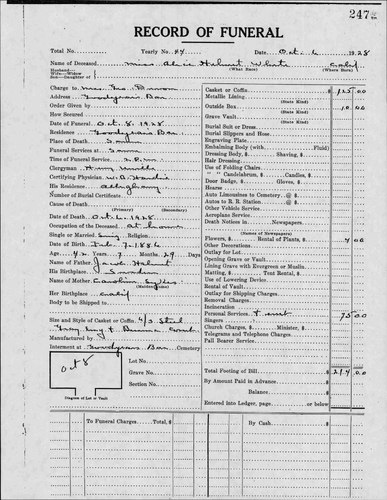 247
RECORD OF FUNERAL
Total No. Yearly No. 44 Date Oct. 6 1928
Name of Deceased Miss Alice Helmut White Calif
Husband— (What Race) (Where Born)
Wife—Widow
Son—Daughter of
Charge to Mrs. Geo. 
Address Goodyears Bar
Order Given by
How Secured
Date of Funeral Oct. 8, 1928
Residence Goodyears Bar
Place of Death
Funeral Services at
Time of Funeral Service 2 P.m.
Clergyman Henry
Certifying Physician
His Residence Alleghany
Number of Burial Certificate
Cause of Death
(Secondary)
Date of Death Oct. 6, 1928
Occupation of the Deceased at home
Single or Married Religion
Date of Birth Feb. 7, 1886
Age 42 Years 7 Months 29 Days
Name of Father Jacob Helmut
His Birthplace Sweden
Name of Mother Caroline
(Maiden Name)
Her Birthplace Calif
Body to be Shipped to
Size and Style of Casket or Coffin 6/3 Steel
Grey
Manufactured by
Interment at Goodyears Bar Cemetery
Oct 8
Lot No.
Grave No.
Section No.
Diagram of Lot or Vault
Casket or Coffin $ 125 00
Metallic Lining
(State Kind)
Outside Box 10 00
(State Kind)
Grave Vault
(State Kind)
Burial Suit or Dress
Burial Slippers and Hose
Engraving Plate
Embalming Body (with Fluid)
Dressing Body, $ Shaving, $
Hair Dressing
Use of Folding Chairs
" " Candelabrum, $ Candles, $
Door Badge, $ Gloves, $
Hearse
Auto Limousines to Cemetery @ $
Autos to R. R. Station @ $
Other Vehicle Service
Aeroplane Service
Death Notices in Newspapers
(Names of Newspapers)
Flowers, $ Rental of Plants, $ 4 00
Other Decorations
Outlay for Lot
Opening Grave or Vault
Lining Grave with Evergreen or Muslin
Matting, $ Tent Rental, $
Use of Lowering Device
Rental of Vault
Outlay for Shipping Charges
Removal Charges
Incineration
Personal Services 75 00
Singers
Church Charges, $ Minister, $
Telegrams and Telephone Charges
Pall Bearer Service
Total Footing of Bill $ 214 00
By Amount Paid in Advance $
Balance $
Entered into Ledger, page or below
To Funeral Charges Total, $ By Cash $